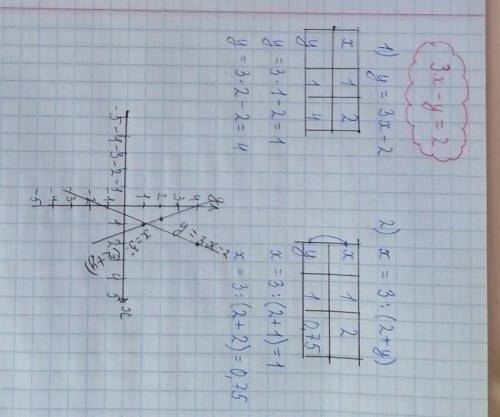 3x - y = 2
1) y = 3x - 2
x 1 2
y 1 4
y = 3·1 - 2 = 1
y = 3·2 - 2 = 4
2) x = 3 : (2+y)
x 1 2
y 1 0,75
x = 3 : (2+1) = 1
x = 3 : (2+2) = 0,75
y = 3x - 2
x = 3 : (2+y)
-5 -4 -3 -2 -1 1 2 3 4 5 x
4
3
2
1
-1
-2
-3
-4
-5